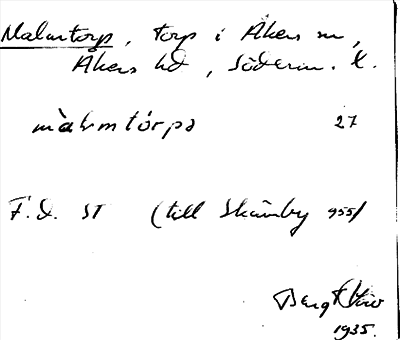 Malmtorp, torp i Åkers sn,
Åkers hd, Söderm. l.
màlmtórpə 27
F.d. ST (till Skämby 955/
1935.